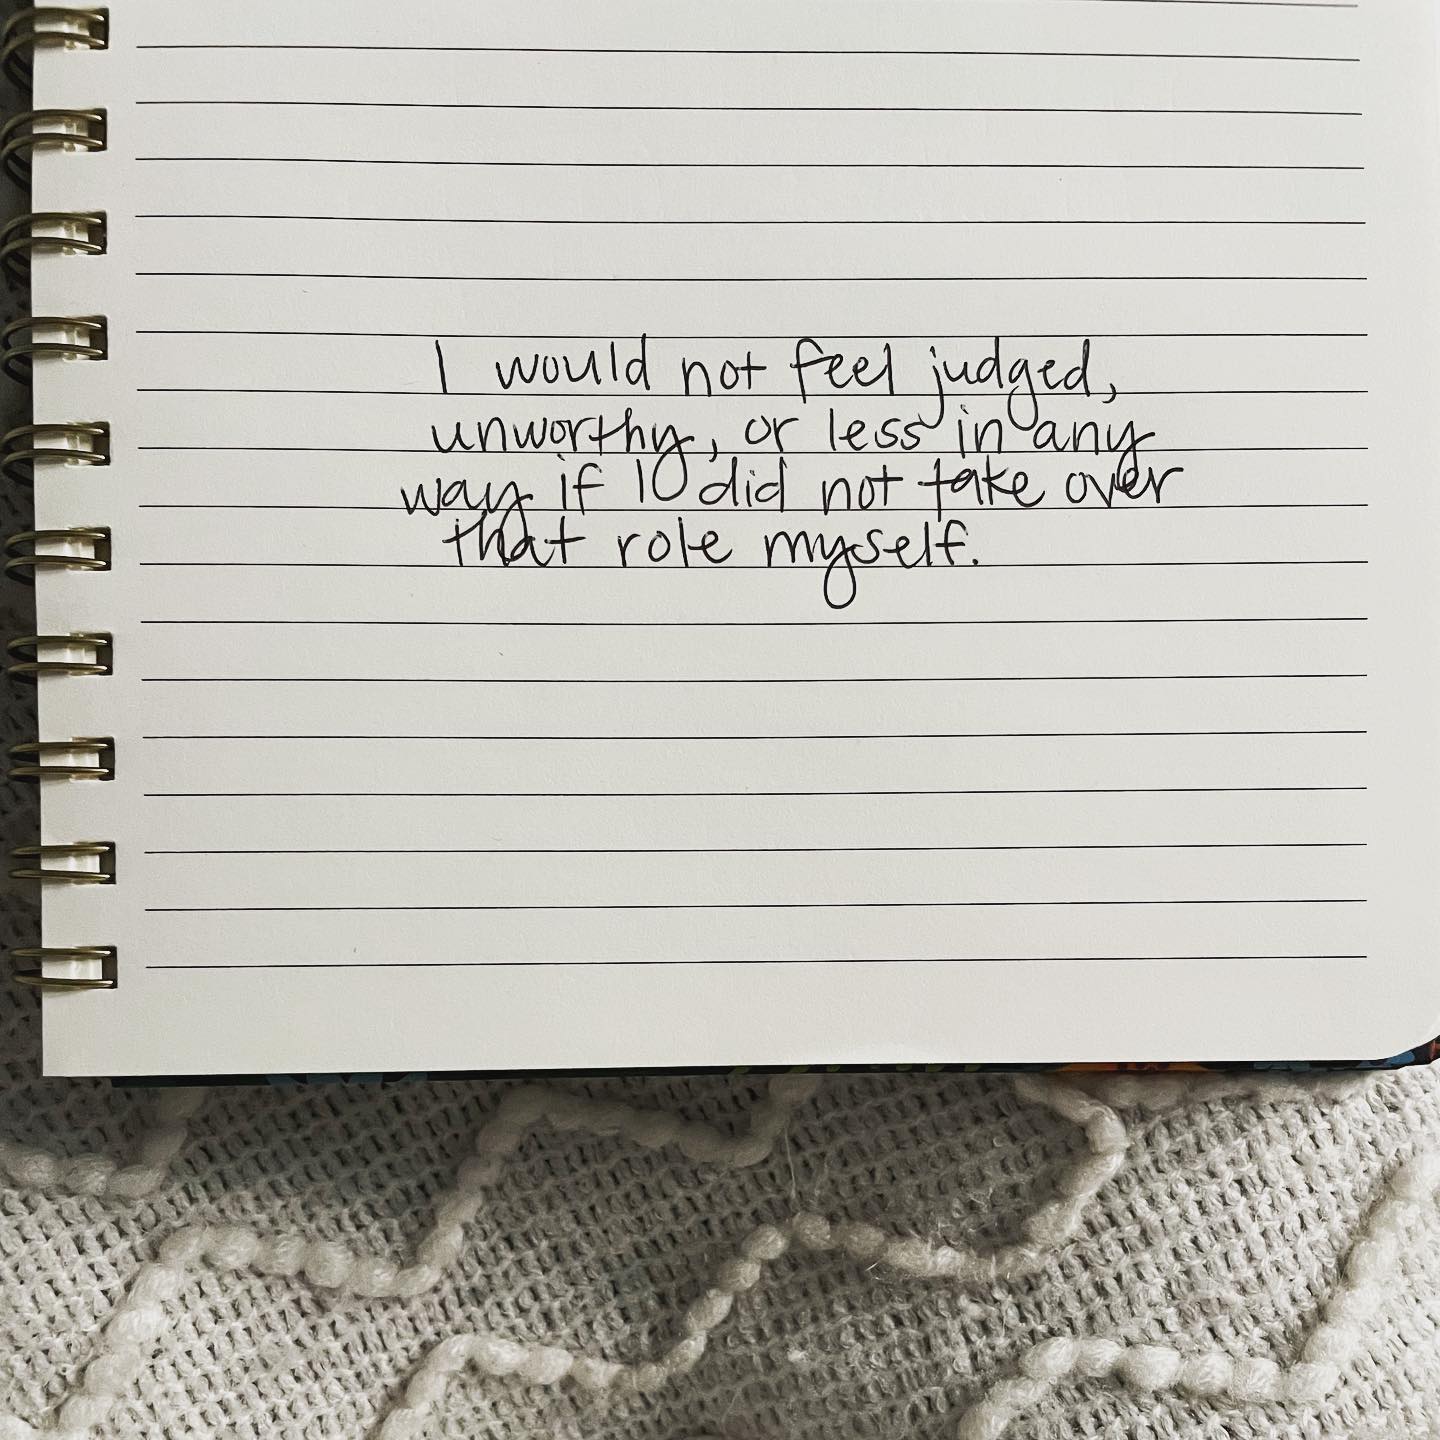 I would not feel judged,
unworthy, or less in any
way if I did not take over
that role myself.